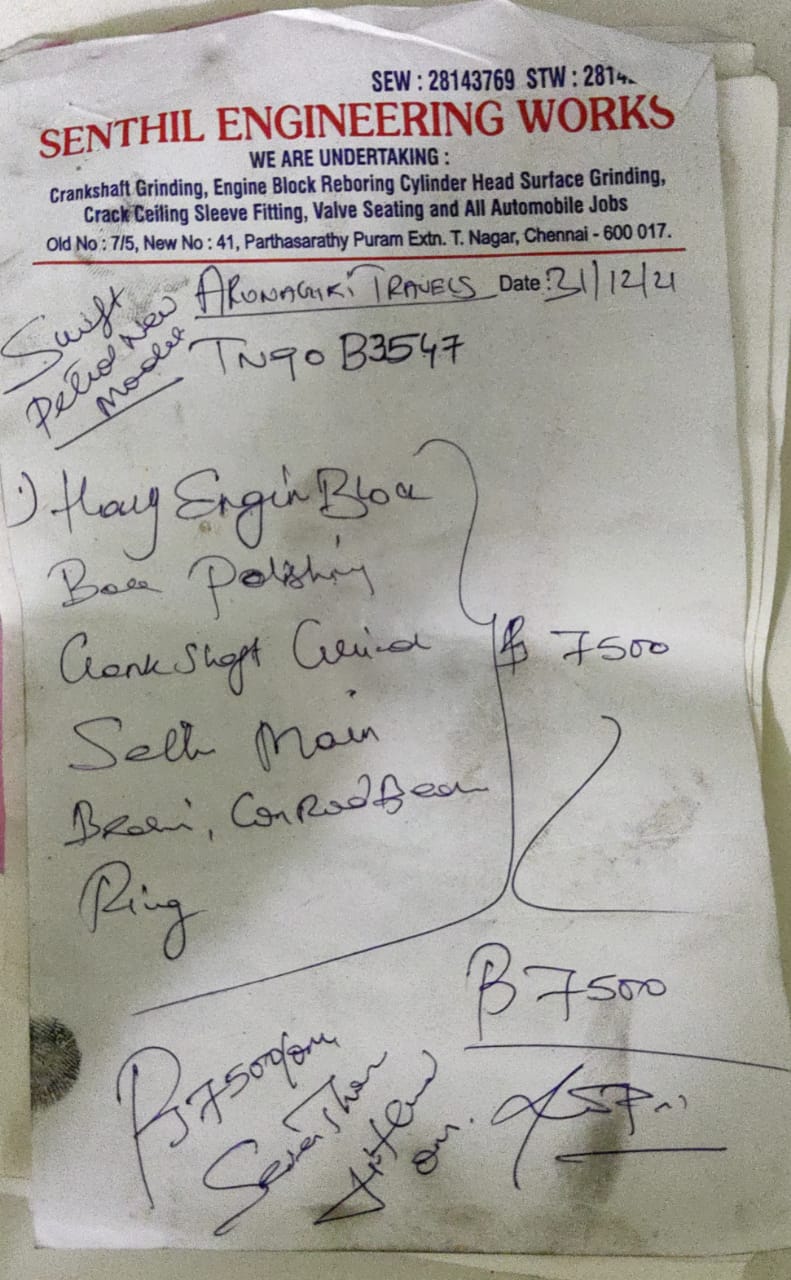 SEW : 28143769 STW : 2814
SENTHIL ENGINEERING WORKS
WE ARE UNDERTAKING :
Crankshaft Grinding, Engine Block Reboring Cylinder Head Surface Grinding,
Crack Ceiling Sleeve Fitting, Valve Seating and All Automobile Jobs
Old No : 7/5, New No : 41, Parthasarathy Puram Extn. T. Nagar, Chennai - 600 017.
Swift
Petrol New
Model
ARUNAGIRI TRAVELS Date : 31/12/21
TN90 B3547
1) Engin Block
Bore Polishing
Crank Shaft Grind
7500
Main
ConRod
Ring
7500
7500